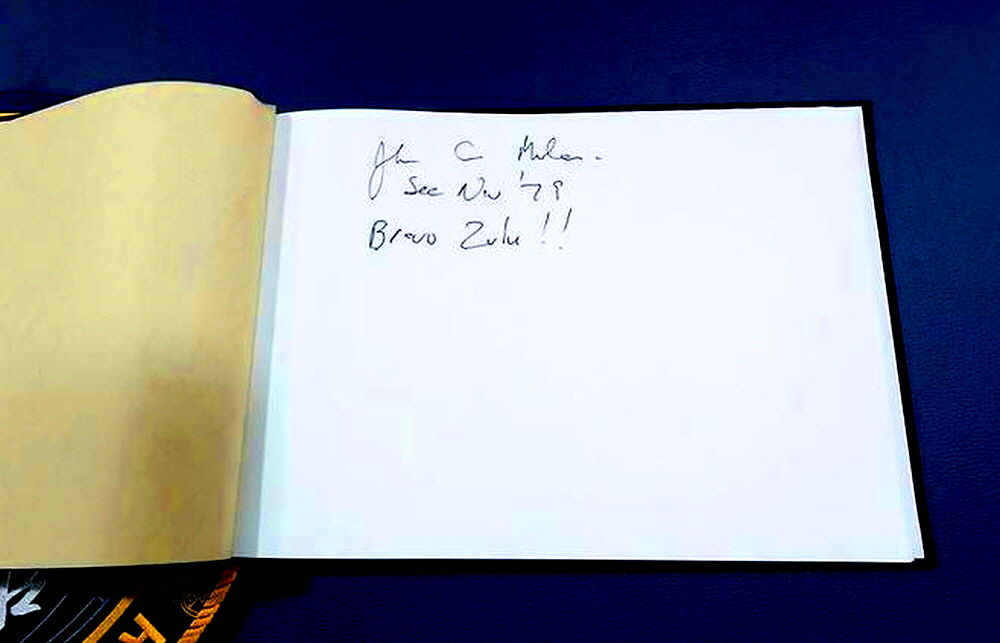 John C
Sec Nav '79
Bravo Zulu!!